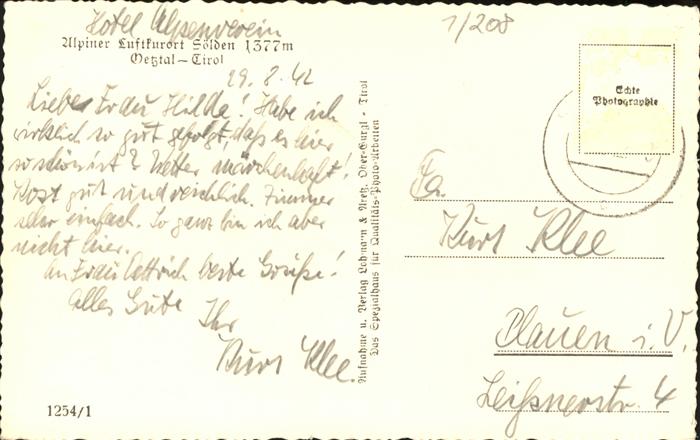 Hotel Alpenverein
Alpiner Luftkurort Sölden 1377m
Oetztal—Tirol
29. 8. 42
Liebe Frau Hilde! Habe ich
wirklich so gut gefolgt, daß es hier
so schön ist? Wetter märchenhaft!
Kost gut und reichlich. Zimmer
sehr einfach. So ganz bin ich aber
nicht hier.
An Frau beste Grüße!
Alles Gute
Ihr
Kurt Klee.
1254/1
Aufnahme u. Verlag Lohmann & Aretz, Ober-Gurgl - Tirol
Das Spezialhaus für Qualitäts-Photo-Arbeiten
1/208
Echte
Photographie
Fa.
Kurt Klee
Plauen i. V.
Leißnerstr. 4